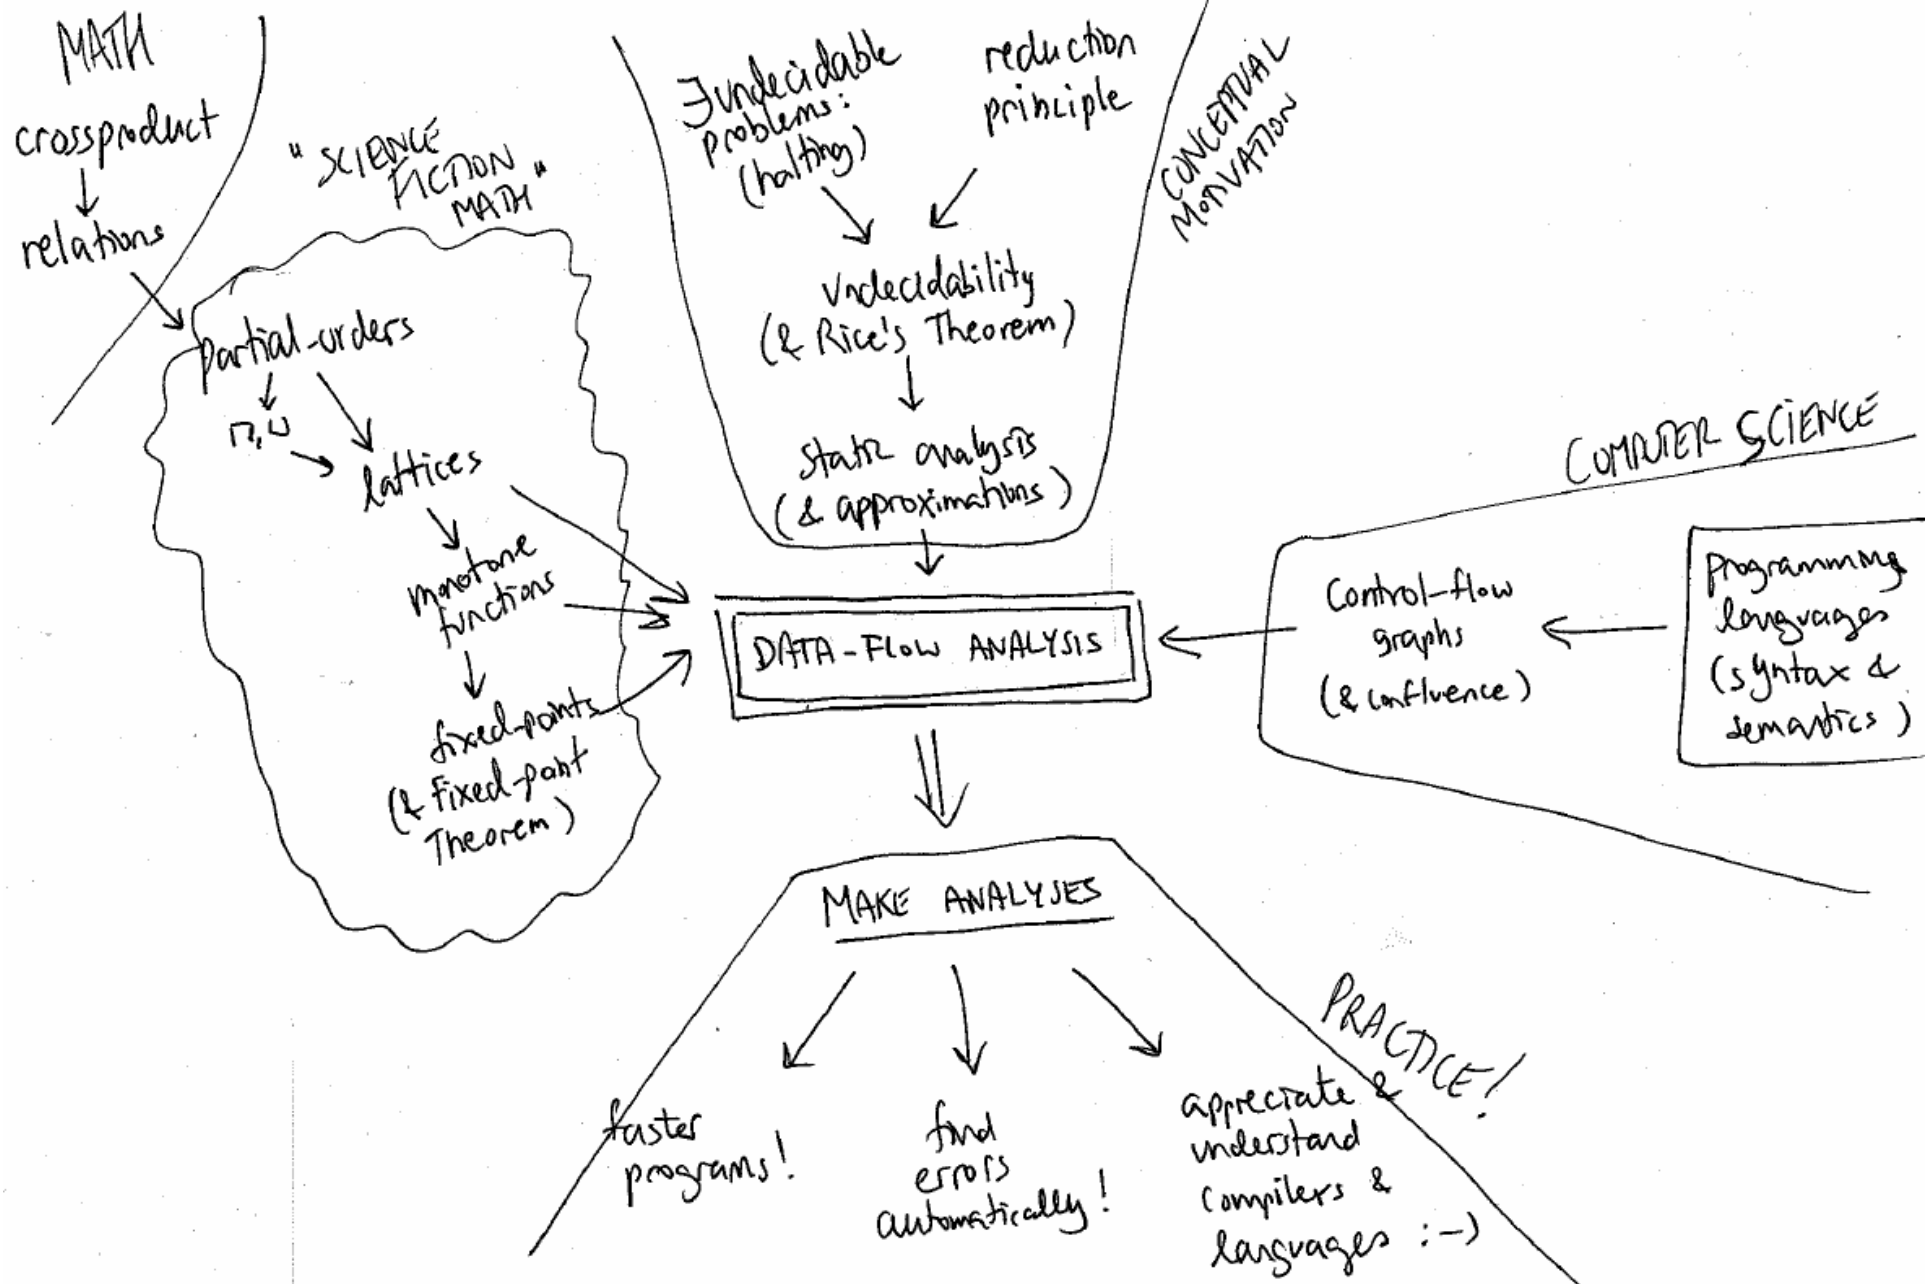 MATH
crossproduct
relations
"SCIENCE
FICTION
MATH"
partial-orders
⊓,⊔
lattices
monotone
functions
fixed-points
(& Fixed-point
Theorem)
∃ undecidable
problems:
(halting)
reduction
principle
CONCEPTUAL
MOTIVATION
Undecidability
(& Rice's Theorem)
static analysis
(& approximations)
DATA-FLOW ANALYSIS
COMPUTER SCIENCE
Control-flow
graphs
(& confluence)
Programming
languages
(syntax &
semantics)
MAKE ANALYSES
PRACTICE!
faster
programs!
find
errors
automatically!
appreciate &
understand
compilers &
languages :-)